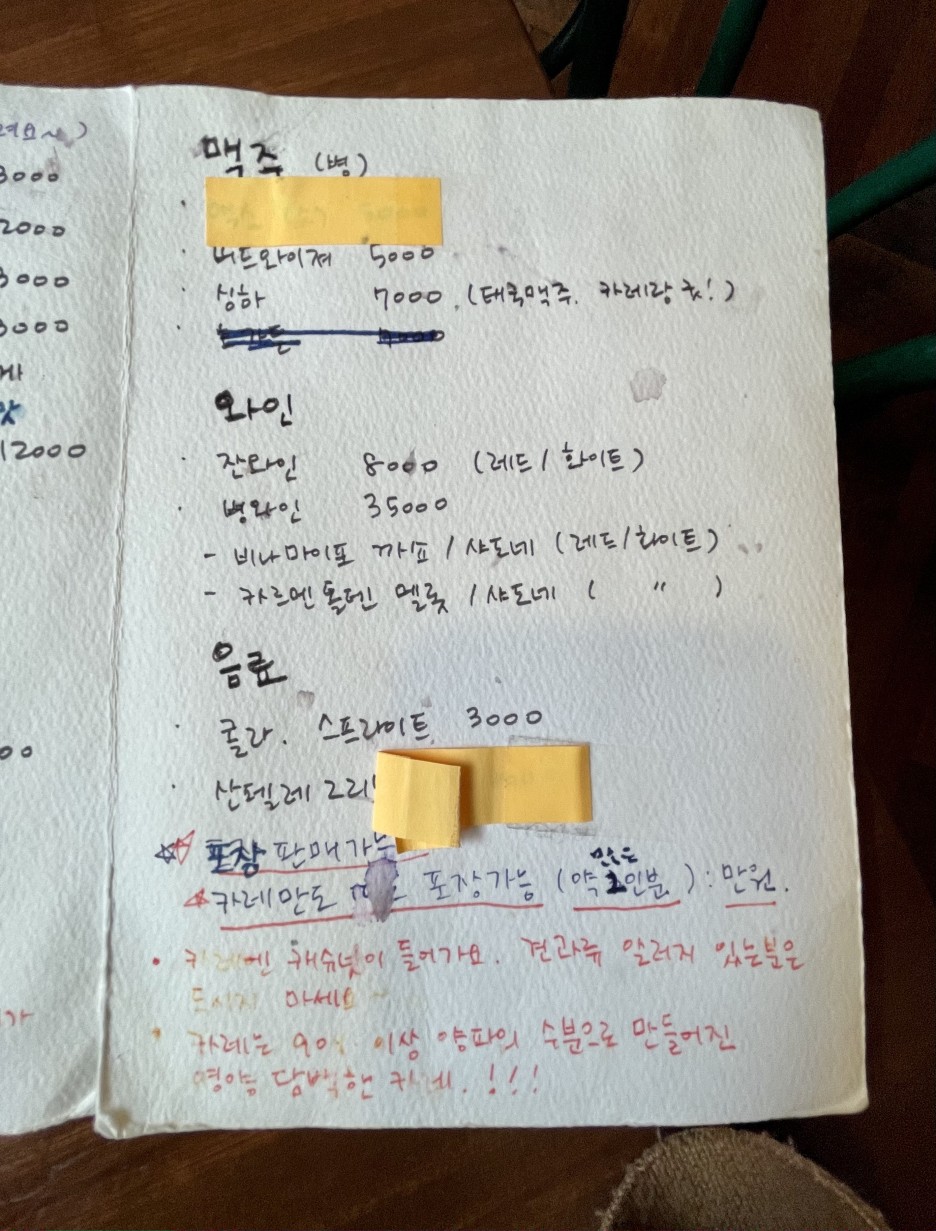 려요~)
3000
2000
3000
3000
12000
00
맥주 (병)
· 버드와이저 5000
· 싱하 7000 (태국맥주. 카레랑 굿!)
와인
· 잔와인 8000 (레드/화이트)
· 병와인 35000
- 비나마이포 까쇼/샤도네 (레드/화이트)
- 카르멘 톨텐 멜롯/샤도네 ( " )
음료
· 콜라. 스프라이트. 3000
· 산펠레그리
☆ 포장 판매가능
☆ 카레만도 포장가능 (약 인분) : 만원.
· 카레엔 캐슈넛이 들어가요. 견과류 알러지 있는분은
드시지 마세요~
· 카레는 90% 이상 양파의 수분으로 만들어진
영양 담백한 카레.!!!